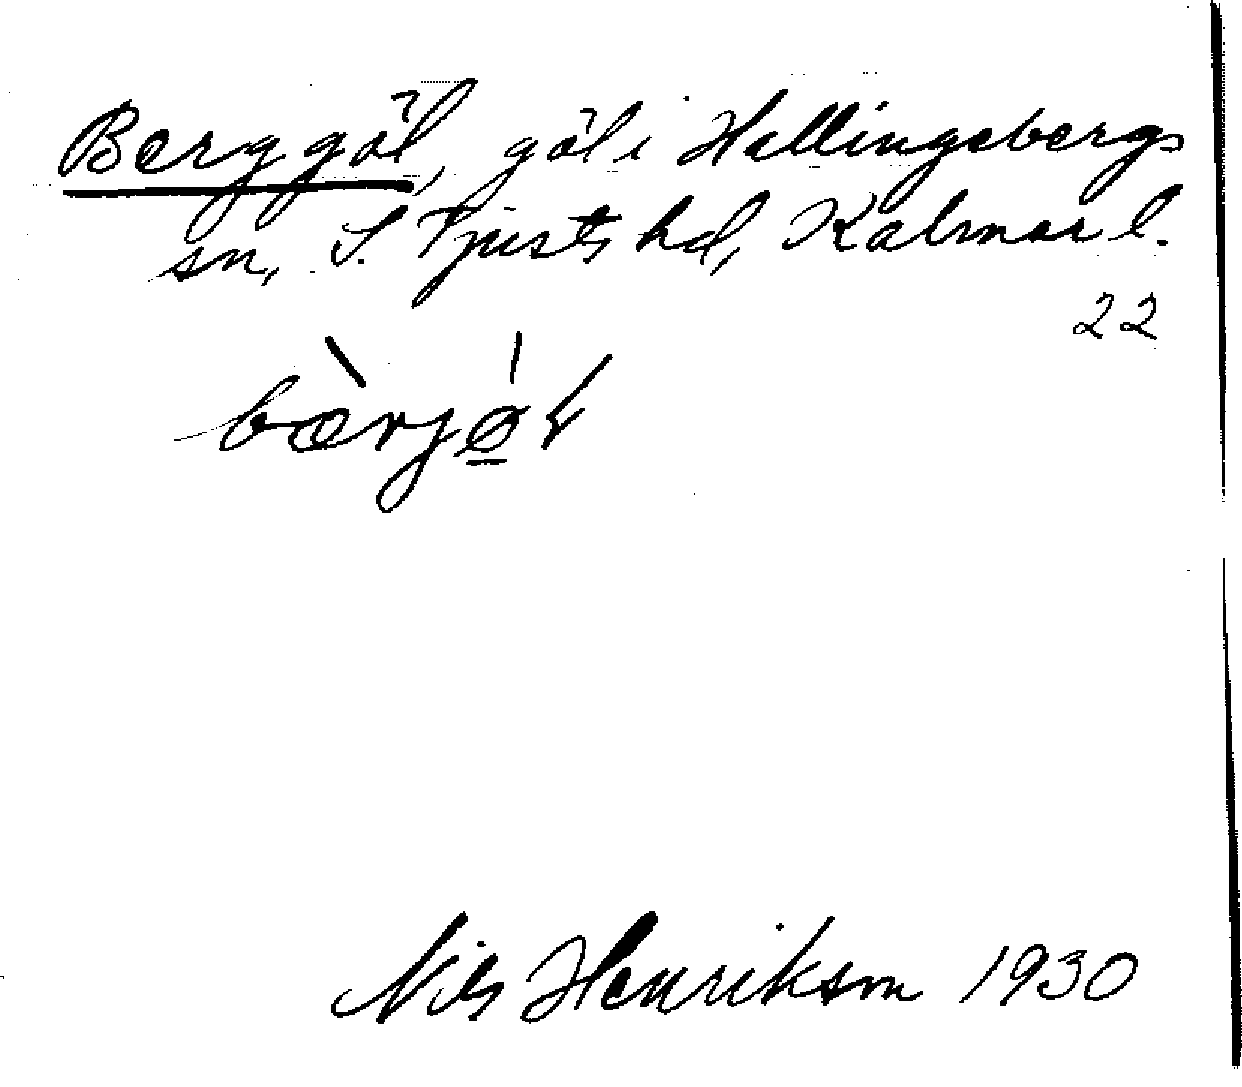 Berggöl, göl i Hallingebergs
sn, S. Tjusts hd, Kalmar l.
22
Nils Henrikson 1930